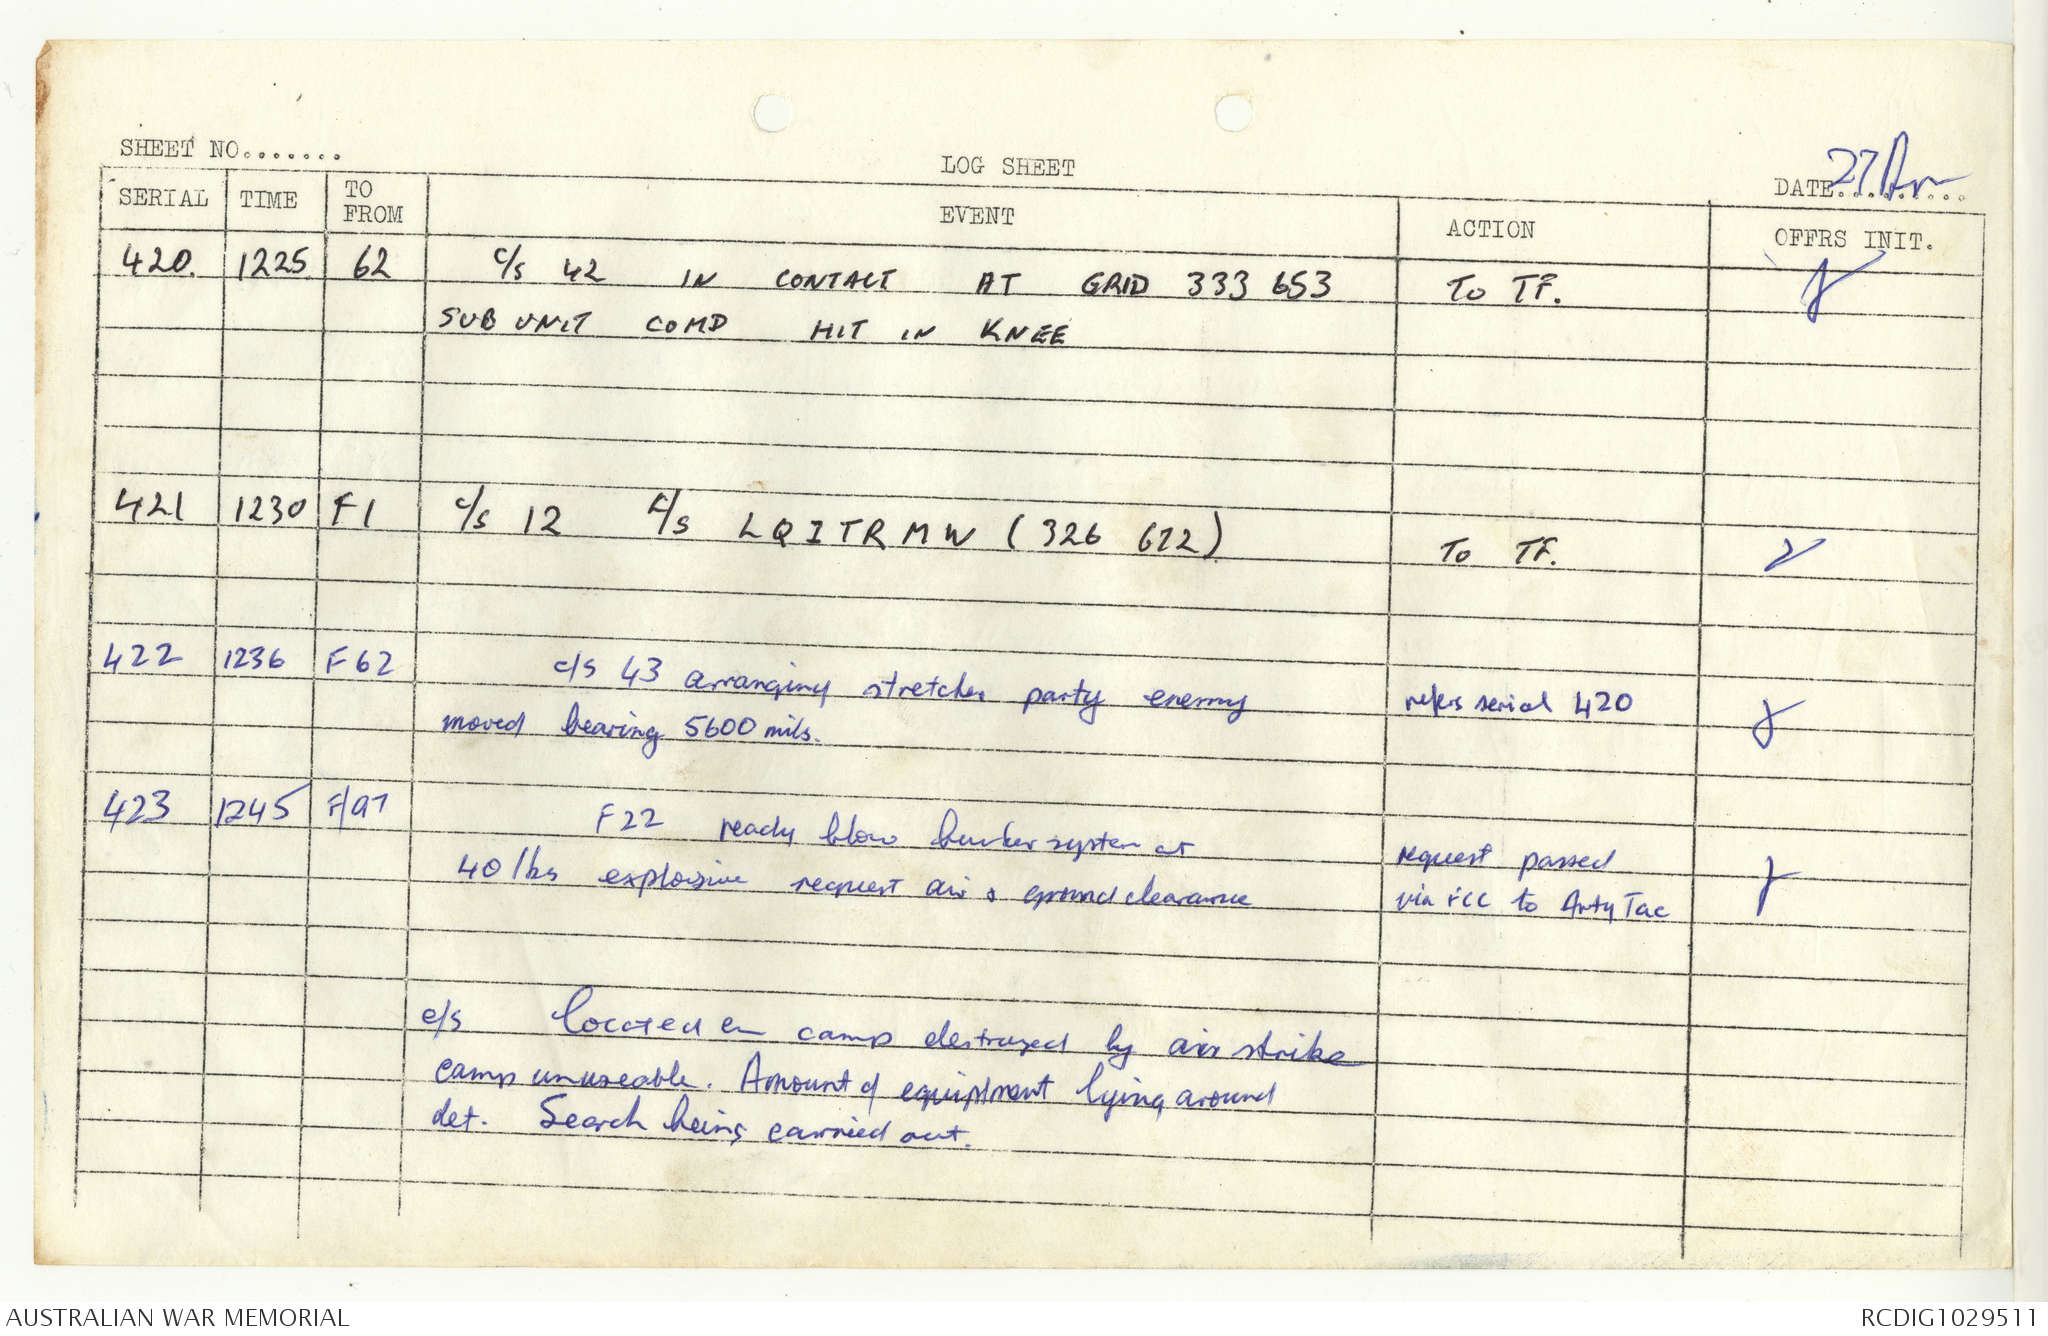 SHEET NO.......
LOG SHEET
DATE.......... 27 Apr
SERIAL TIME TO FROM EVENT ACTION OFFRS INIT.
420. 1225 62 c/s 42 IN CONTACT AT GRID 333 653 To TF.
SUB UNIT COMD HIT IN KNEE
421 1230 F1 c/s 12 L/s LQITRMW (326 672) To TF.
422 1236 F62 c/s 43 arranging stretcher party enemy refers serial 420
moved bearing 5600 mils.
423 1245 F/97 F22 ready blow bunker system at request passed
40 lbs explosive request air & ground clearance via FCC to Arty Tac
c/s located en camp destroyed by air strike
camp unuseable. Amount of equipment lying around
det. Search being carried out.
AUSTRALIAN WAR MEMORIAL
RCDIG1029511